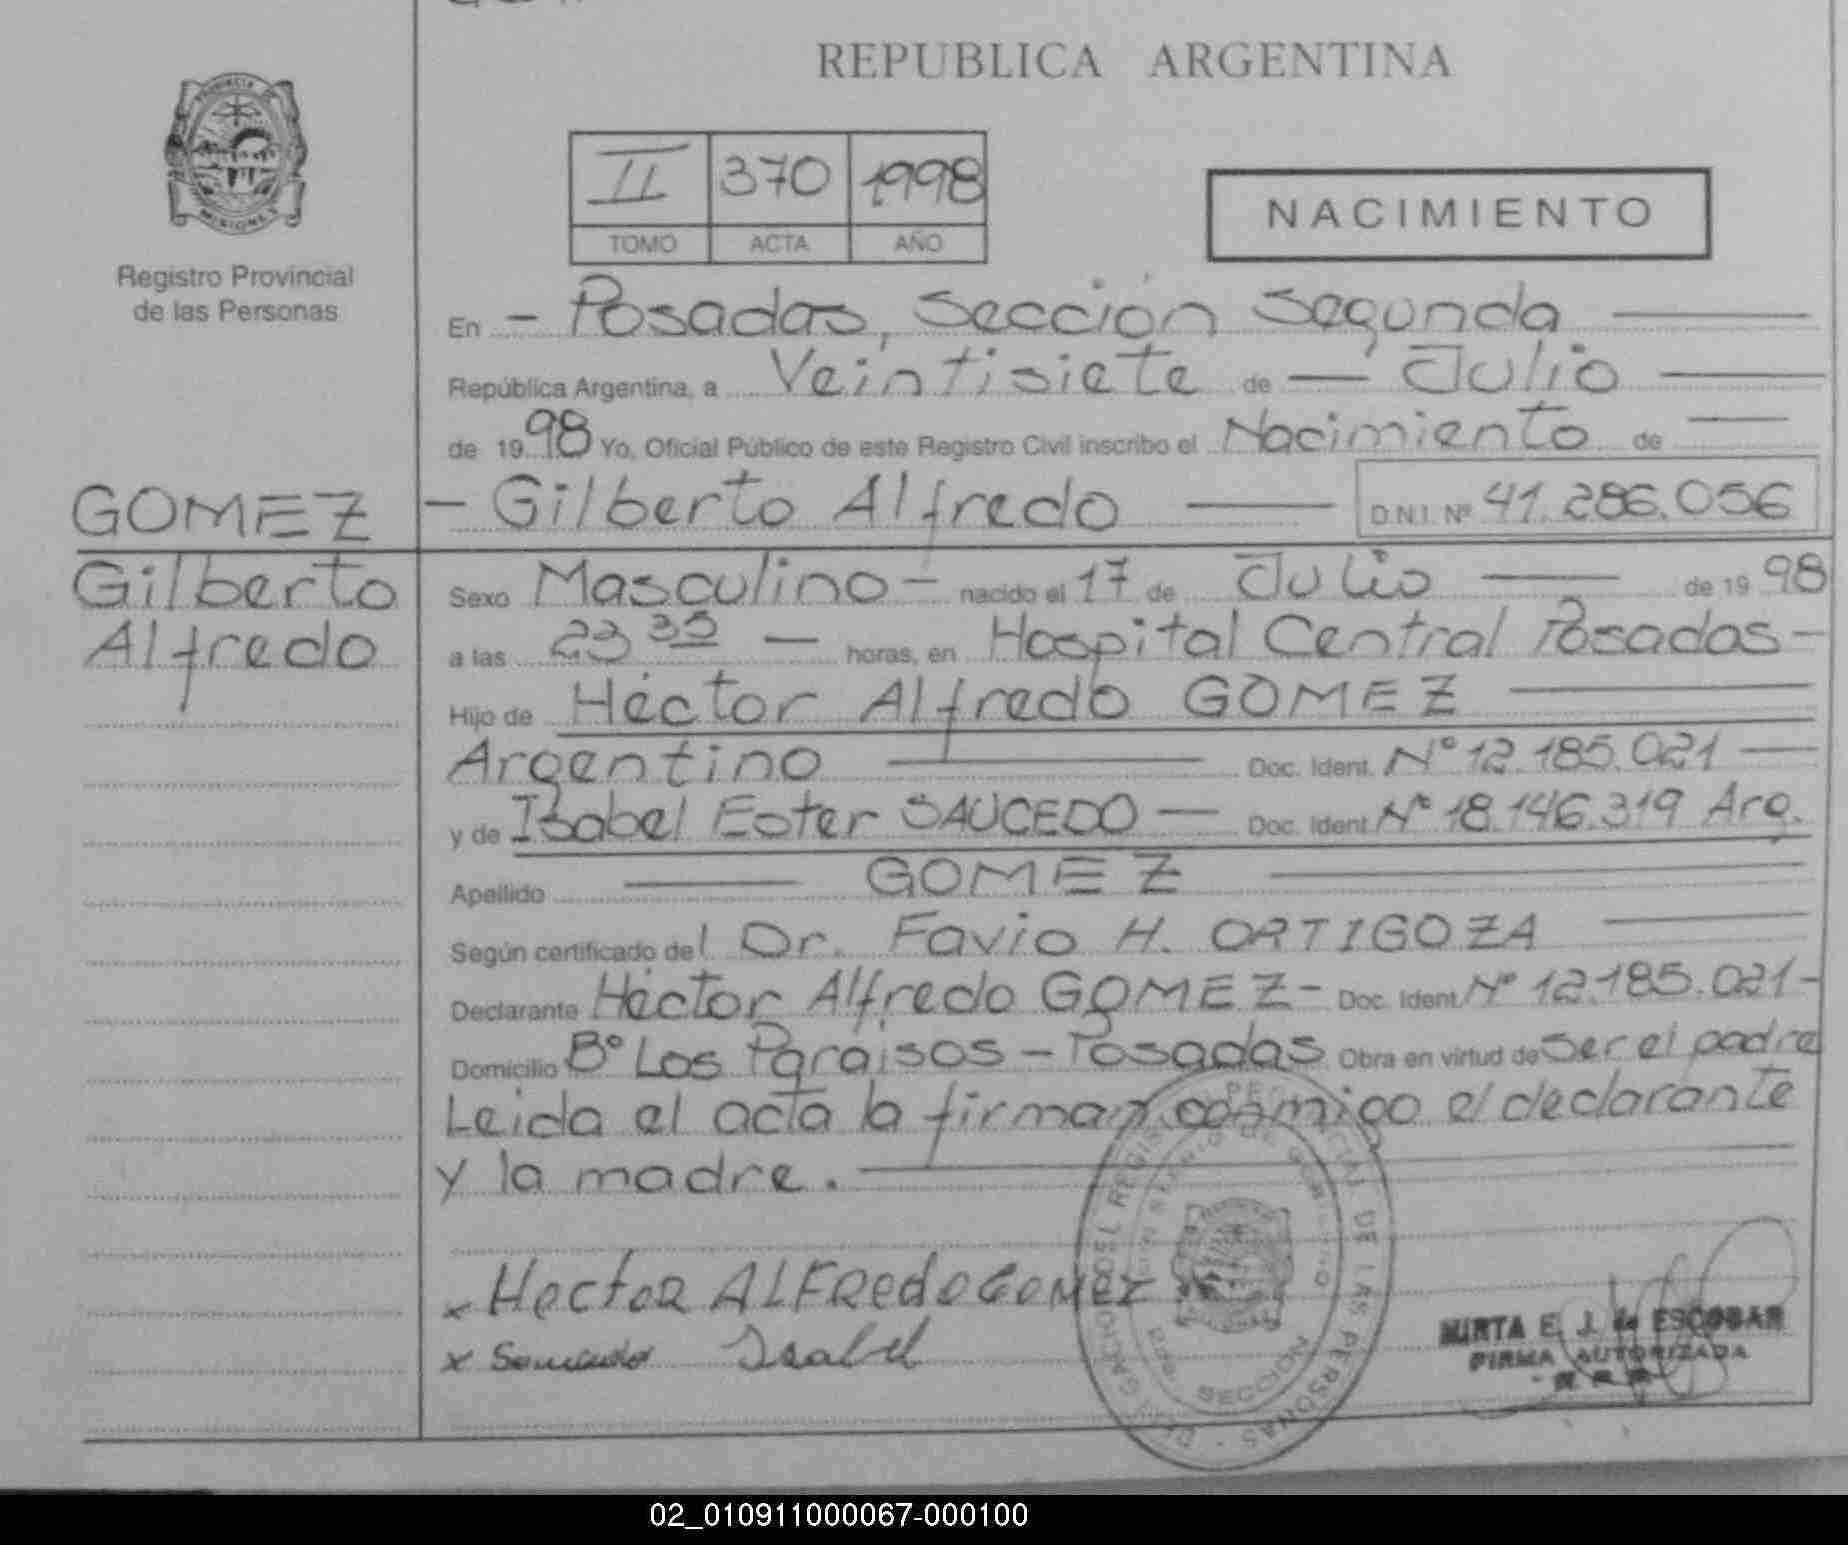 REPUBLICA ARGENTINA
PROVINCIA DE
MISIONES
Registro Provincial
de las Personas
II 370 1998
TOMO ACTA AÑO
NACIMIENTO
En - Posadas, Sección Segunda
República Argentina, a Veintisiete de Julio
de 1998 Yo, Oficial Público de este Registro Civil inscribo el Nacimiento de
GOMEZ - Gilberto Alfredo D.N.I. Nº 41.286.056
Gilberto
Alfredo
Sexo Masculino - nacido el 17 de Julio de 1998
a las 23 35 horas, en Hospital Central Posadas -
Hijo de Héctor Alfredo GOMEZ
Argentino Doc. Ident. Nº 12.185.021
y de Isabel Ester SAUCEDO Doc. Ident. Nº 18.146.319 Arg.
Apellido GOMEZ
Según certificado del Dr. Favio H. ORTIGOZA
Declarante Héctor Alfredo GOMEZ - Doc. Ident. Nº 12.185.021 -
Domicilio Bº Los Paraisos - Posadas Obra en virtud de Ser el padre
Leida el acta la firman conmigo el declarante
y la madre.
x Hector ALFRedo GOMEZ
x Isabel
DEL REGISTRO PROVINCIAL DE LAS PERSONAS
SECCION
MIRTA E. J. de ESCOBAR
FIRMA AUTORIZADA
02_010911000067-000100